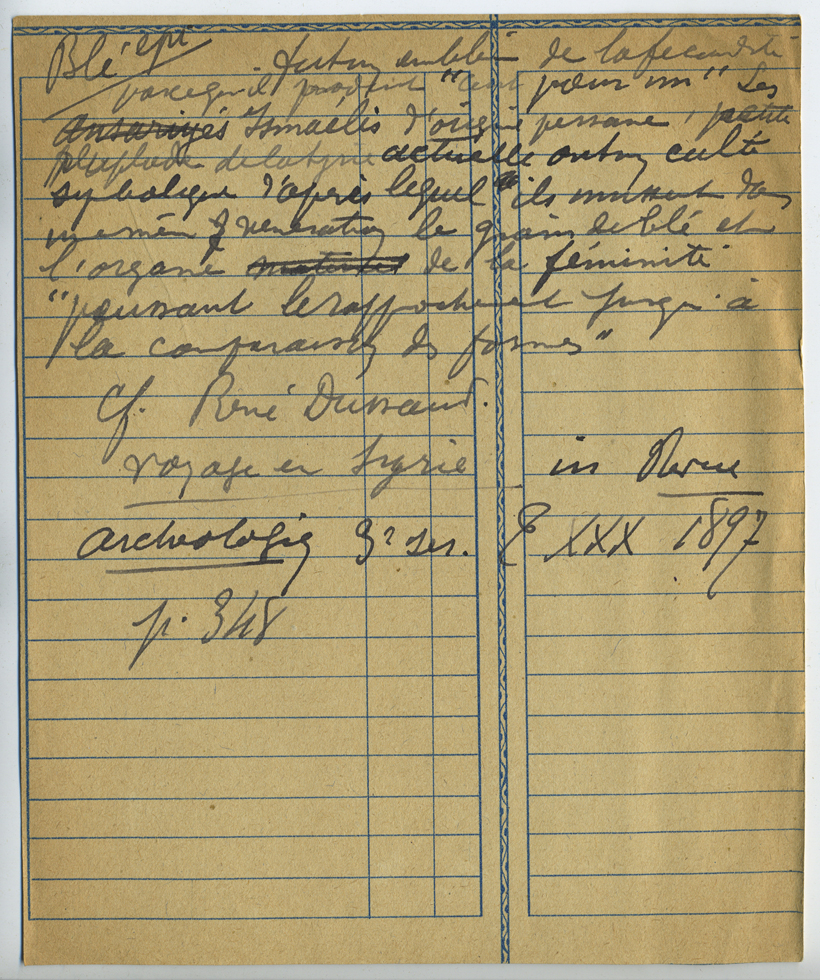 Blé épi
fut un emblème de la fécondité
parce qu'il produit "cent pour un" Les
Ansariyés Ismaélis d'origine persane, petite
peuplade de la Syrie actuelle ont un culte
symbolique d'après lequel "ils unissent dans
une même vénération le grain de blé et
l'organe de la féminité
"poussant le rapprochement jusqu'à
la comparaison des formes"
Cf. René Dussaud.
Voyage en Syrie in Revue
archéologique 3e ser. t XXX 1897
p. 348